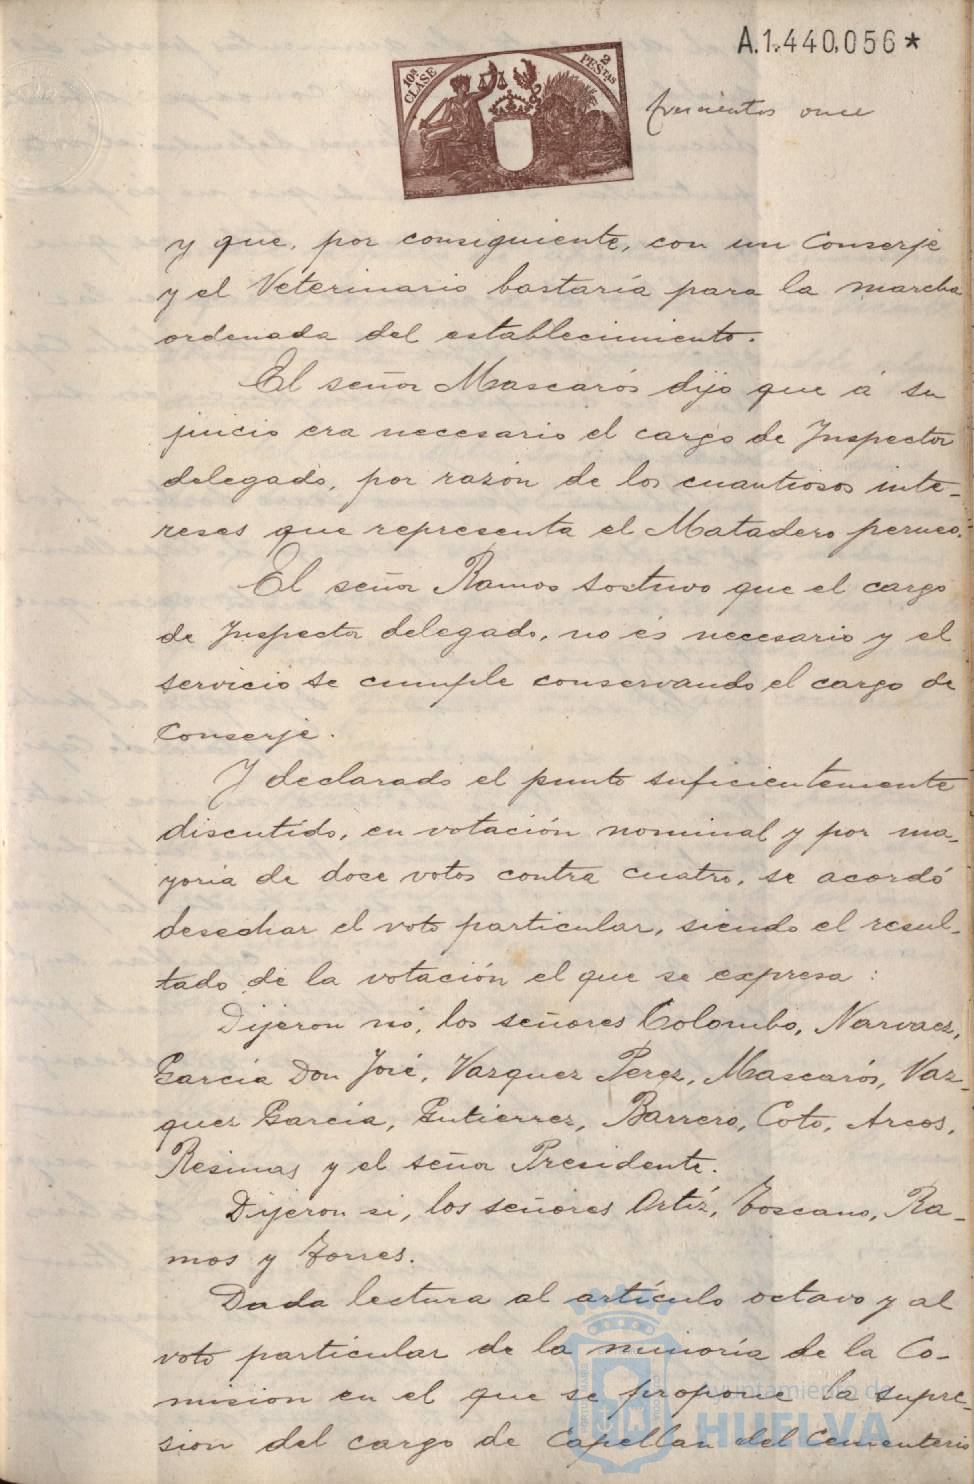 A.1.440,056*
10ª CLASE
2 PESTAS
trescientos once
y que, por consiguiente, con un Conserje
y el Veterinario bastaría para la marcha
ordenada del establecimiento.
El señor Mascarós dijo que á su
juicio era necesario el cargo de Inspector
delegado, por razón de los cuantiosos inte-
reses que representa el Matadero
El señor Ramos sostuvo que el cargo
de Inspector delegado, no és necesario y el
servicio se cumple conservando el cargo de
Conserje.
Y declarado el punto suficientemente
discutido, en votación nominal y por ma-
yoria de doce votos contra cuatro, se acordó
desechar el voto particular, siendo el resul-
tado de la votación el que se expresa:
Dijeron nó, los señores Colombo, Narvaez,
García Don José, Vazquez Perez, Mascarós, Vaz-
quez García, Gutierrez, Barrero, Coto, Arcos,
Resinas y el señor Presidente.
Dijeron si, los señores Ortíz, Toscano, Ra-
mos y Torres.
Dada lectura al artículo octavo y al
voto particular de la minoría de la Co-
mision en el que se propone la supre-
sion del cargo de Capellan del Cementerio
Ayuntamiento de
HUELVA